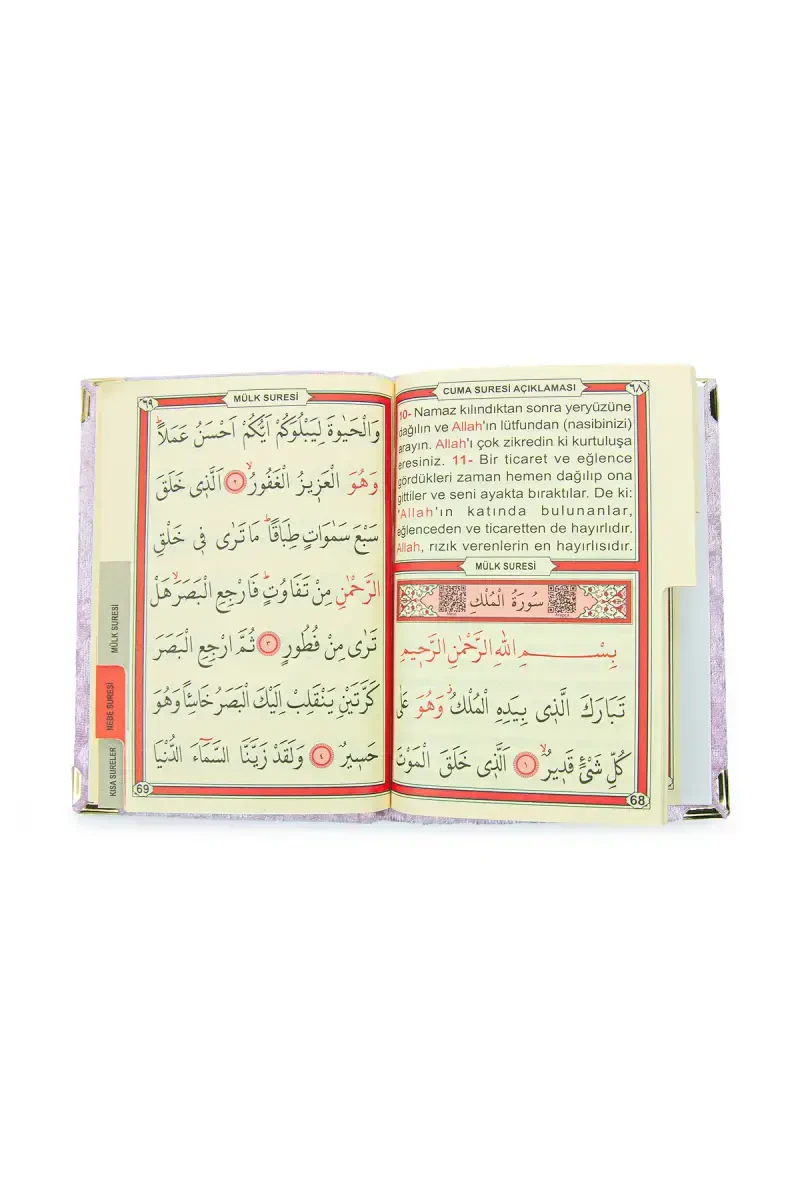 CUMA SURESİ AÇIKLAMASI
٦٨
10- Namaz kılındıktan sonra yeryüzüne
dağılın ve Allah'ın lütfundan (nasibinizi)
arayın. Allah'ı çok zikredin ki kurtuluşa
eresiniz. 11- Bir ticaret ve eğlence
gördükleri zaman hemen dağılıp ona
gittiler ve seni ayakta bıraktılar. De ki:
"Allah'ın katında bulunanlar,
eğlenceden ve ticaretten de hayırlıdır.
Allah, rızık verenlerin en hayırlısıdır.
MÜLK SURESİ
سُورَةُ الْمُلْكِ
بِسْــــــمِ اللّٰهِ الرَّحْمٰنِ الرَّحٖيمِ
تَبَارَكَ الَّذٖى بِيَدِهِ الْمُلْكُؗ وَهُوَ عَلٰى
كُلِّ شَىْءٍ قَدٖيرٌۙ ﴿١﴾ اَلَّذٖى خَلَقَ الْمَوْتَ
68
٦٩
MÜLK SURESİ
وَالْحَيٰوةَ لِيَبْلُوَكُمْ اَيُّكُمْ اَحْسَنُ عَمَلاًؕ
وَهُوَ الْعَزٖيزُ الْغَفُورُۙ ﴿٢﴾ اَلَّذٖى خَلَقَ
سَبْعَ سَمٰوَاتٍ طِبَاقًاؕ مَا تَرٰى فٖى خَلْقِ
الرَّحْمٰنِ مِنْ تَفَاوُتٍؕ فَارْجِعِ الْبَصَرَۙ هَلْ
تَرٰى مِنْ فُطُورٍ ﴿٣﴾ ثُمَّ ارْجِعِ الْبَصَرَ
كَرَّتَيْنِ يَنْقَلِبْ اِلَيْكَ الْبَصَرُ خَاسِئًا وَهُوَ
حَسٖيرٌ ﴿٤﴾ وَلَقَدْ زَيَّنَّا السَّمَٓاءَ الدُّنْيَا
69
MÜLK SURESİ
NEBE SURESİ
KISA SURELER